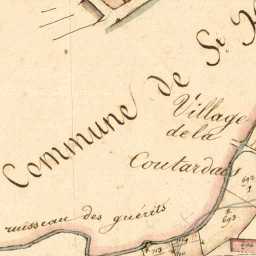 Commune de St
Village
de la
Coutardais
ruisseau des guérits
693